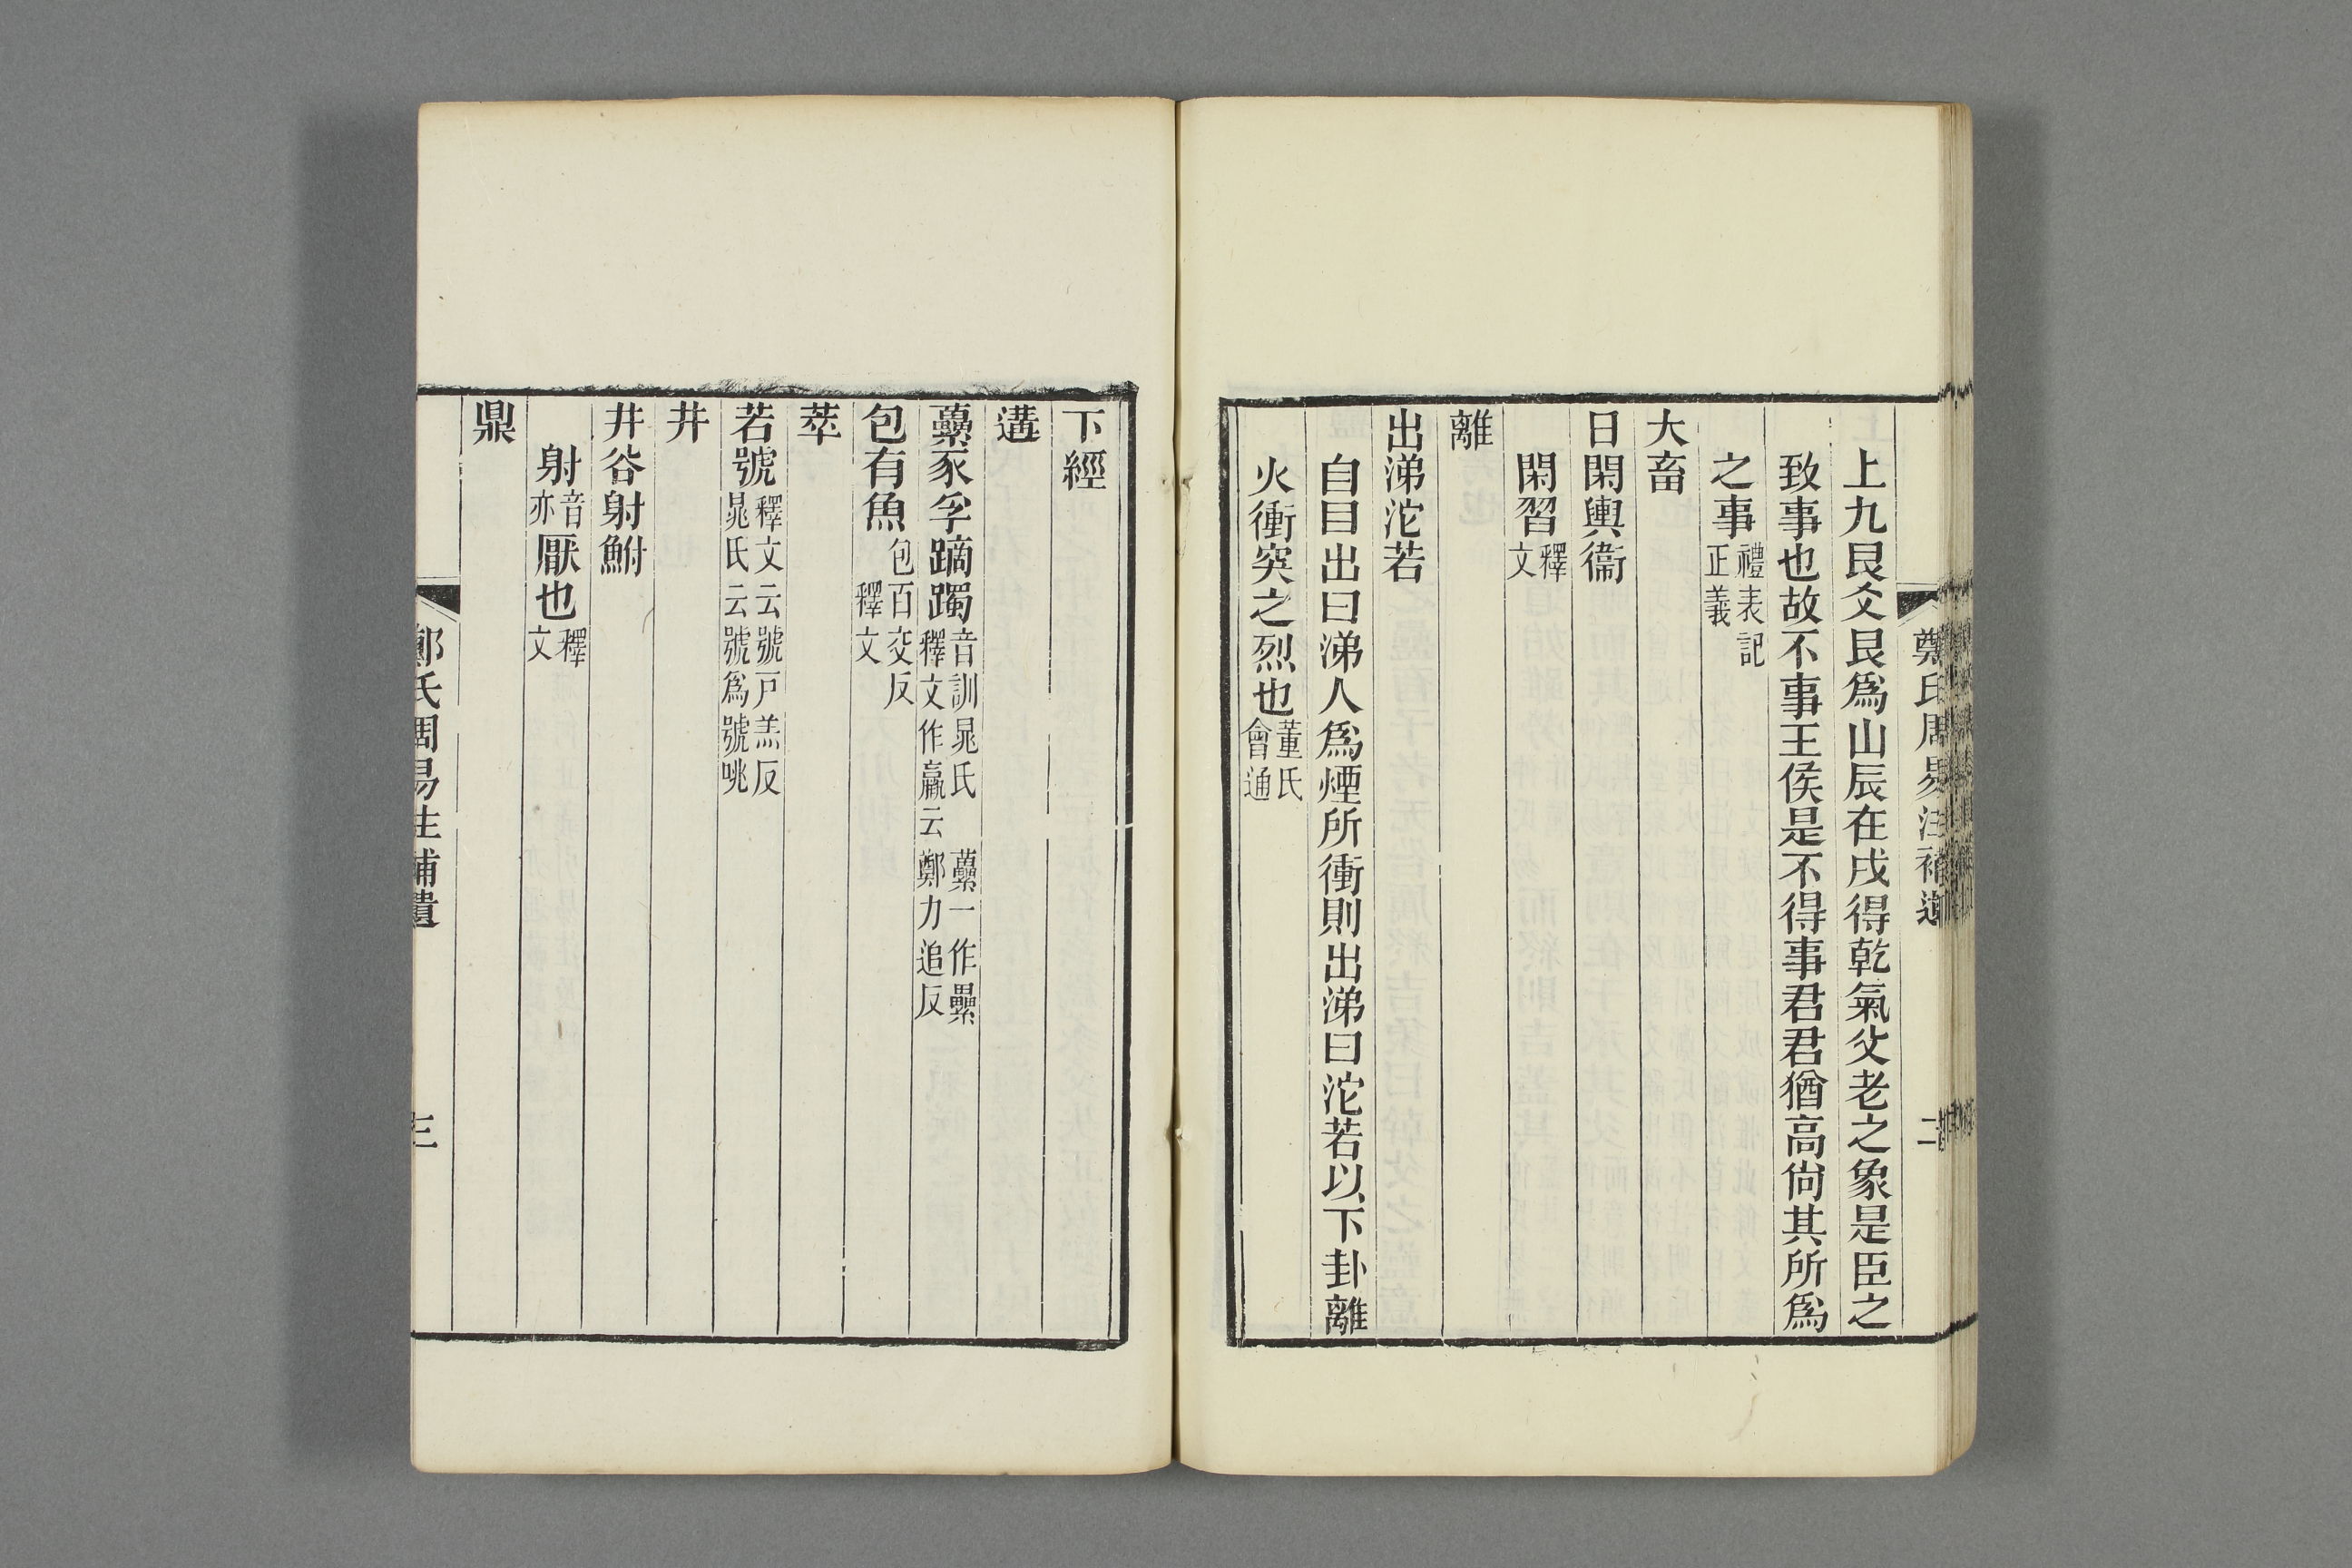 鄭氏周易注補遺
二
上九艮爻艮爲山辰在戌得乾氣父老之象是臣之
致事也故不事王侯是不得事君君猶高尙其所爲
之事禮表記正義
大畜
日閑輿衞
閑習釋文
離
出涕沱若
自目出曰涕人爲煙所衝則出涕曰沱若以下卦離
火衝突之烈也董氏會通
下經
遘
虆豕孚蹢躅音訓晁氏 虆一作纍釋文作羸云鄭力追反
包有魚包百交反釋文
萃
若號釋文云號戸羔反晁氏云號爲號咷
井
井谷射鮒
射音亦厭也釋文
鼎
鄭氏周易注補遺
三